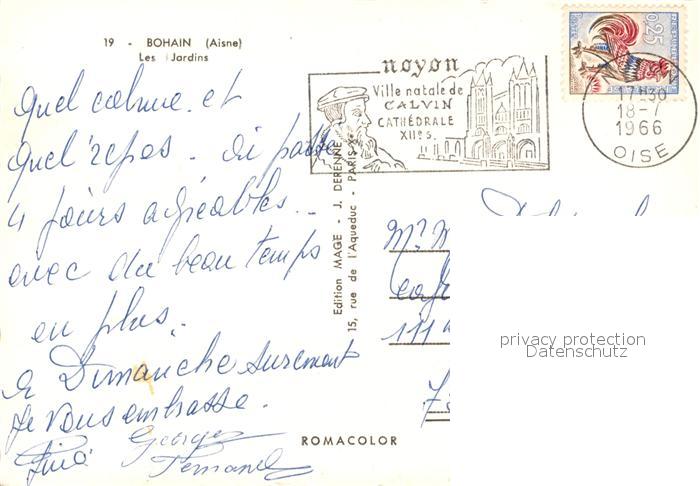 19 - BOHAIN (Aisne)
Les Jardins
noyon
Ville natale de
CALVIN
CATHÉDRALE
XIIe s.
0,25
17H30
18-7
1966
OISE
Quel calme et
quel repos. Ai passé
4 jours agréables.
avec du beau temps
en plus.
à Dimanche surement
Je vous embrasse.
Georges
Edition MAGE - J. DERENNE
15, rue de l'Aqueduc - PARIS-X
111
ROMACOLOR
privacy protection
Datenschutz